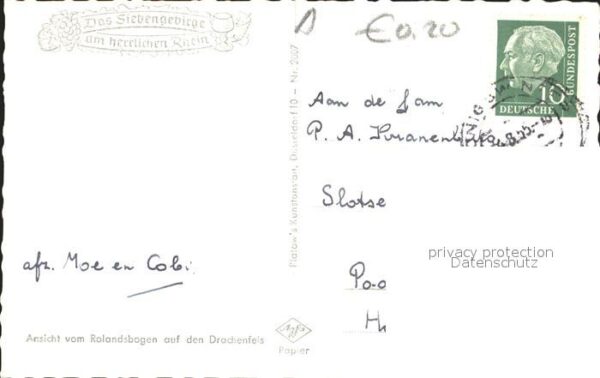 Das Siebengebirge
am herrlichen Rhein
€0.20
DEUTSCHE BUNDESPOST
10
Aan de fam
P. A.
Slotse
privacy protection
Datenschutz
afz. Moe en Cobi
Ansicht vom Rolandsbogen auf den Drachenfels
Agfa
Papier
Düsseldorf 10 - Nr. 2007